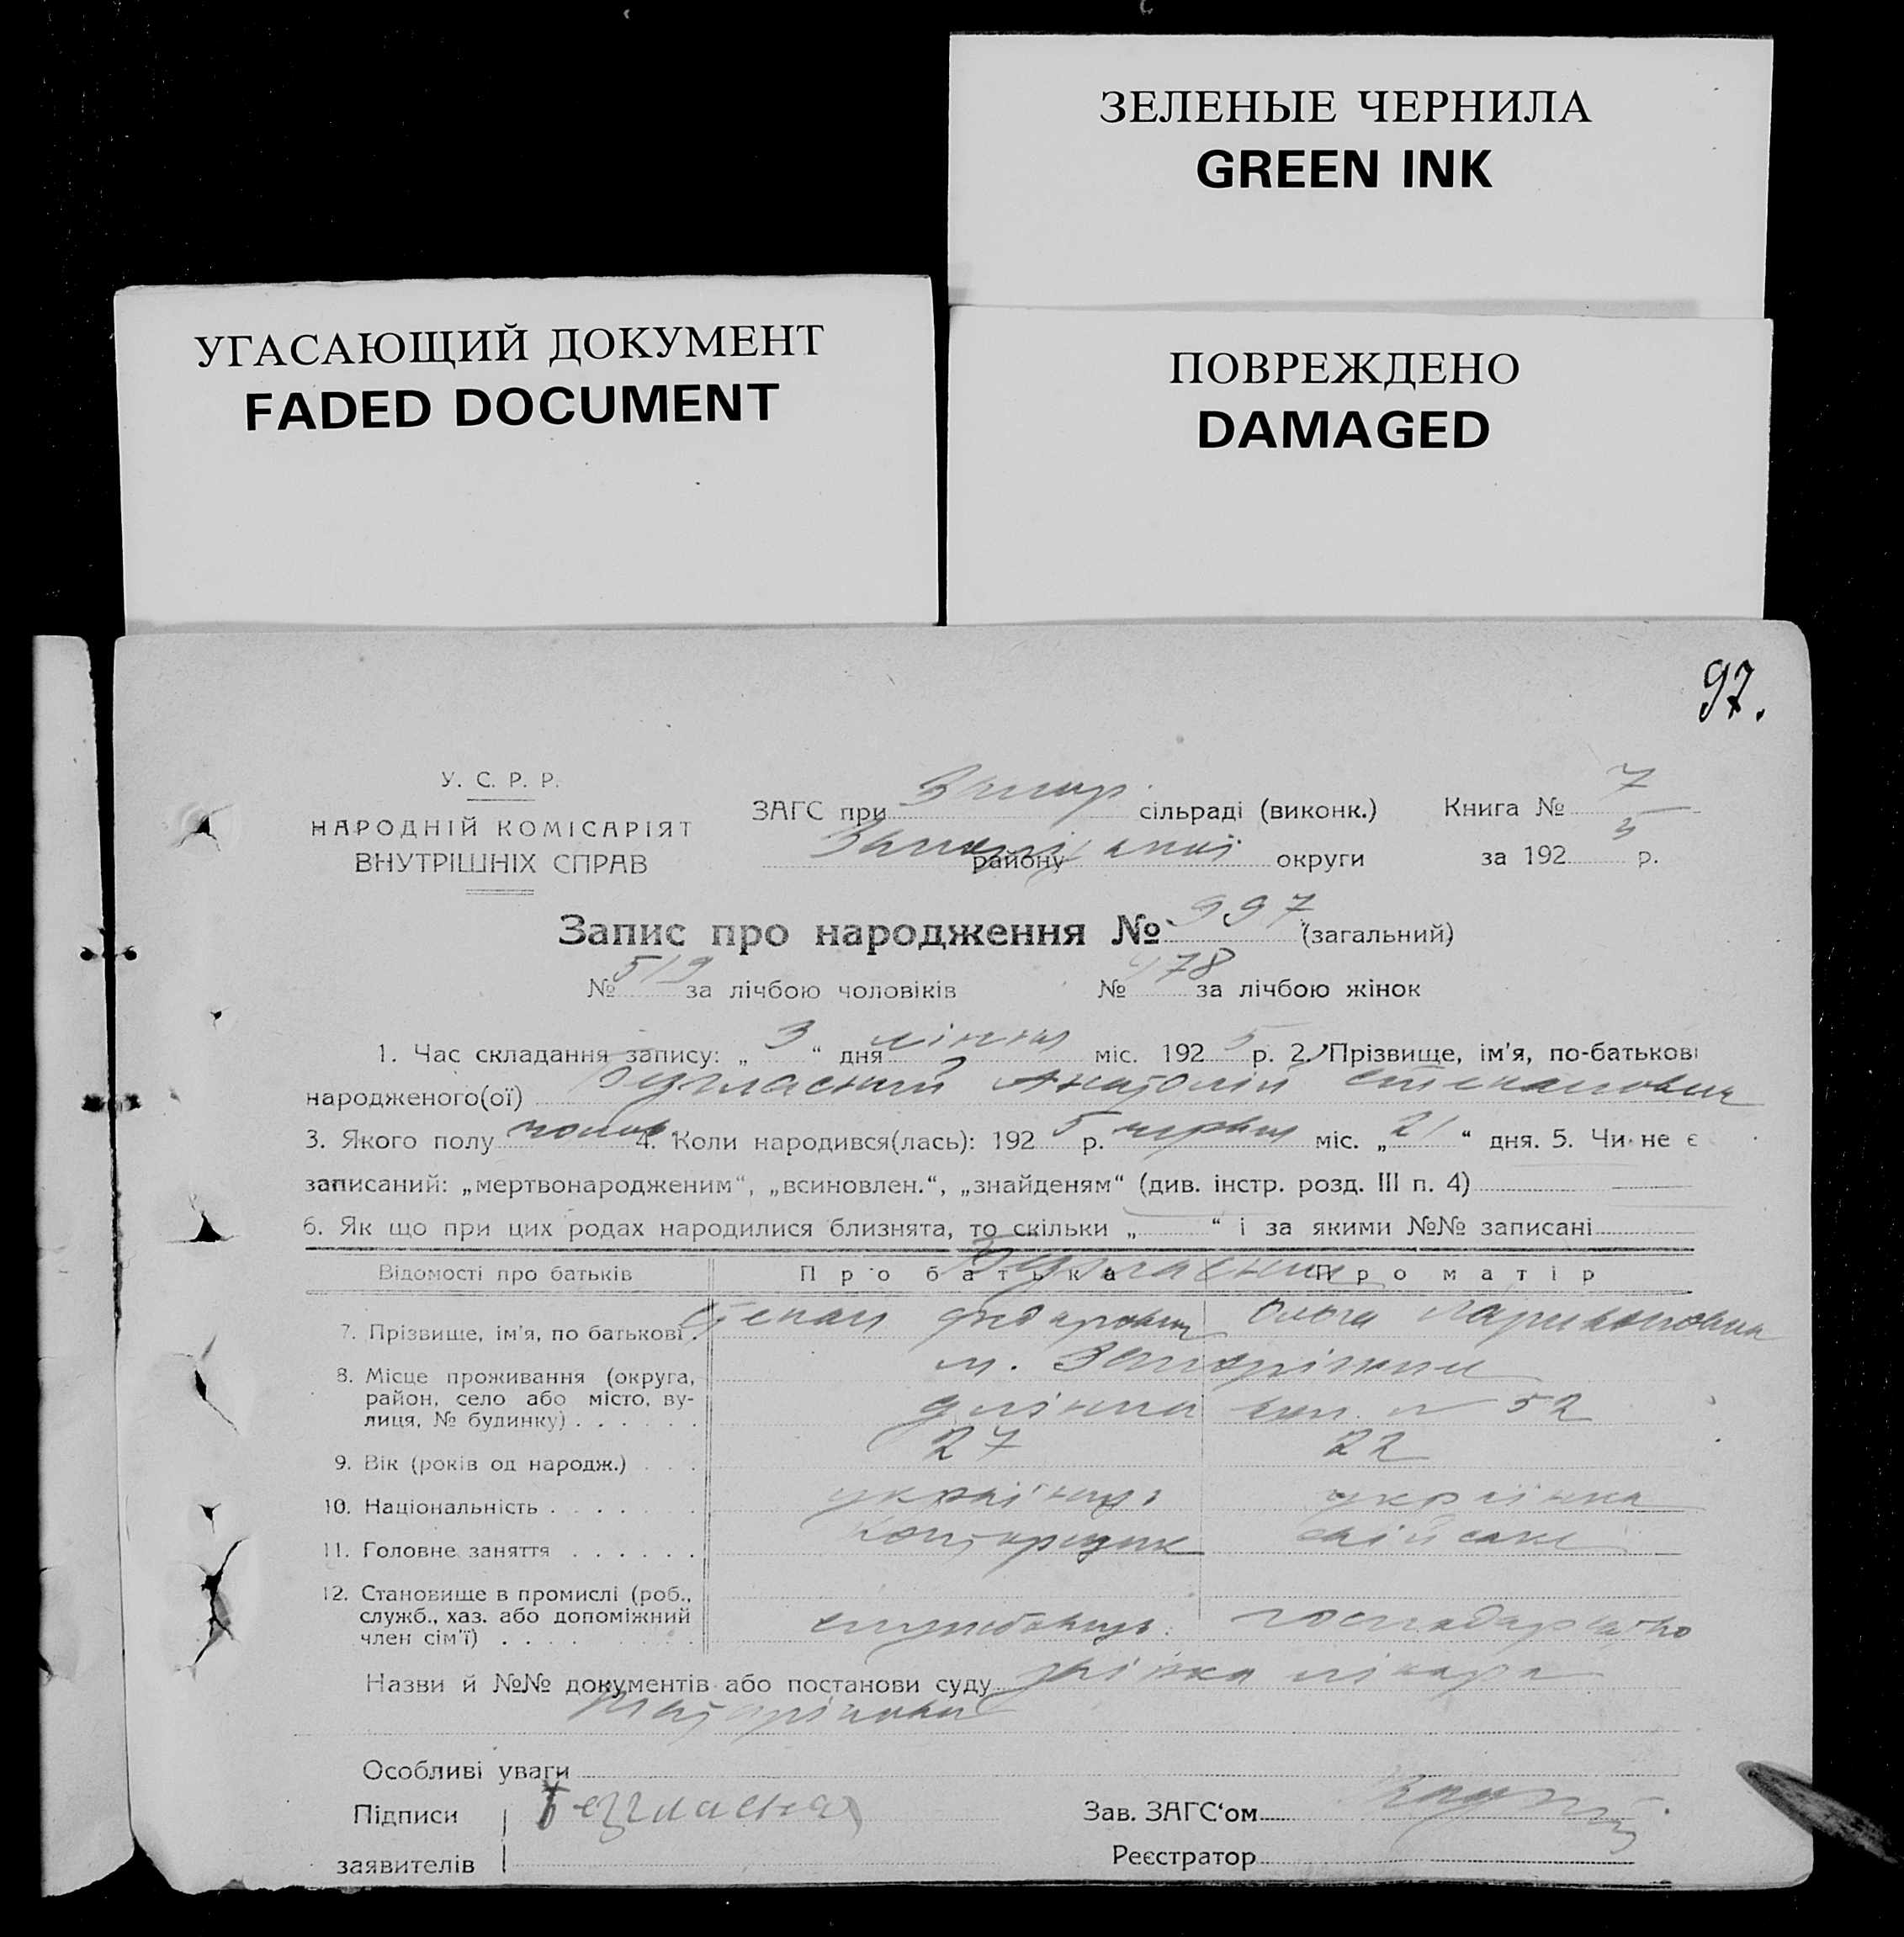 ЗЕЛЕНЫЕ ЧЕРНИЛА
GREEN INK
УГАСАЮЩИЙ ДОКУМЕНТ
FADED DOCUMENT
ПОВРЕЖДЕНО
DAMAGED
97.
У. С. Р. Р.
НАРОДНІЙ КОМІСАРІЯТ
ВНУТРІШНІХ СПРАВ
ЗАГС при Запор. сільраді (виконк.) Книга № 7
району округи за 192 5 р.
Запис про народження № 997 (загальний)
№ 519 за лічбою чоловіків № 478 за лічбою жінок
1. Час складання запису: „ 3 “ дня липня міс. 192 5 р. 2. Прізвище, ім'я, по-батькові
народженого(ої) Безгласний Анатолій Степанович
3. Якого полу чолов. 4. Коли народився(лась): 192 5 р. червня міс. „ 21 “ дня. 5. Чи не є
записаний: „мертвонародженим“, „всиновлен.“, „знайденям“ (див. інстр. розд. III п. 4)
6. Як що при цих родах народилися близнята, то скільки „ “ і за якими №№ записані
Відомості про батьків Про батька Про матір
Безгласни
7. Прізвище, ім'я, по батькові . Степан Федорович Ольга
8. Місце проживання (округа,
район, село або місто, ву-
лиця, № будинку) . . . . . .
м. Запоріжжя
вул. № 52
9. Вік (років од народж.) . . . 27 22
10. Національність . . . . . . . українець українка
11. Головне заняття . . . . . . конторщик
12. Становище в промислі (роб.,
служб., хаз. або допоміжний
член сім'ї) . . . . . . . . службовець господарство
Назви й №№ документів або постанови суду лікаря
Особливі уваги
Підписи Безгласная Зав. ЗАГС‘ом
заявителів Реєстратор